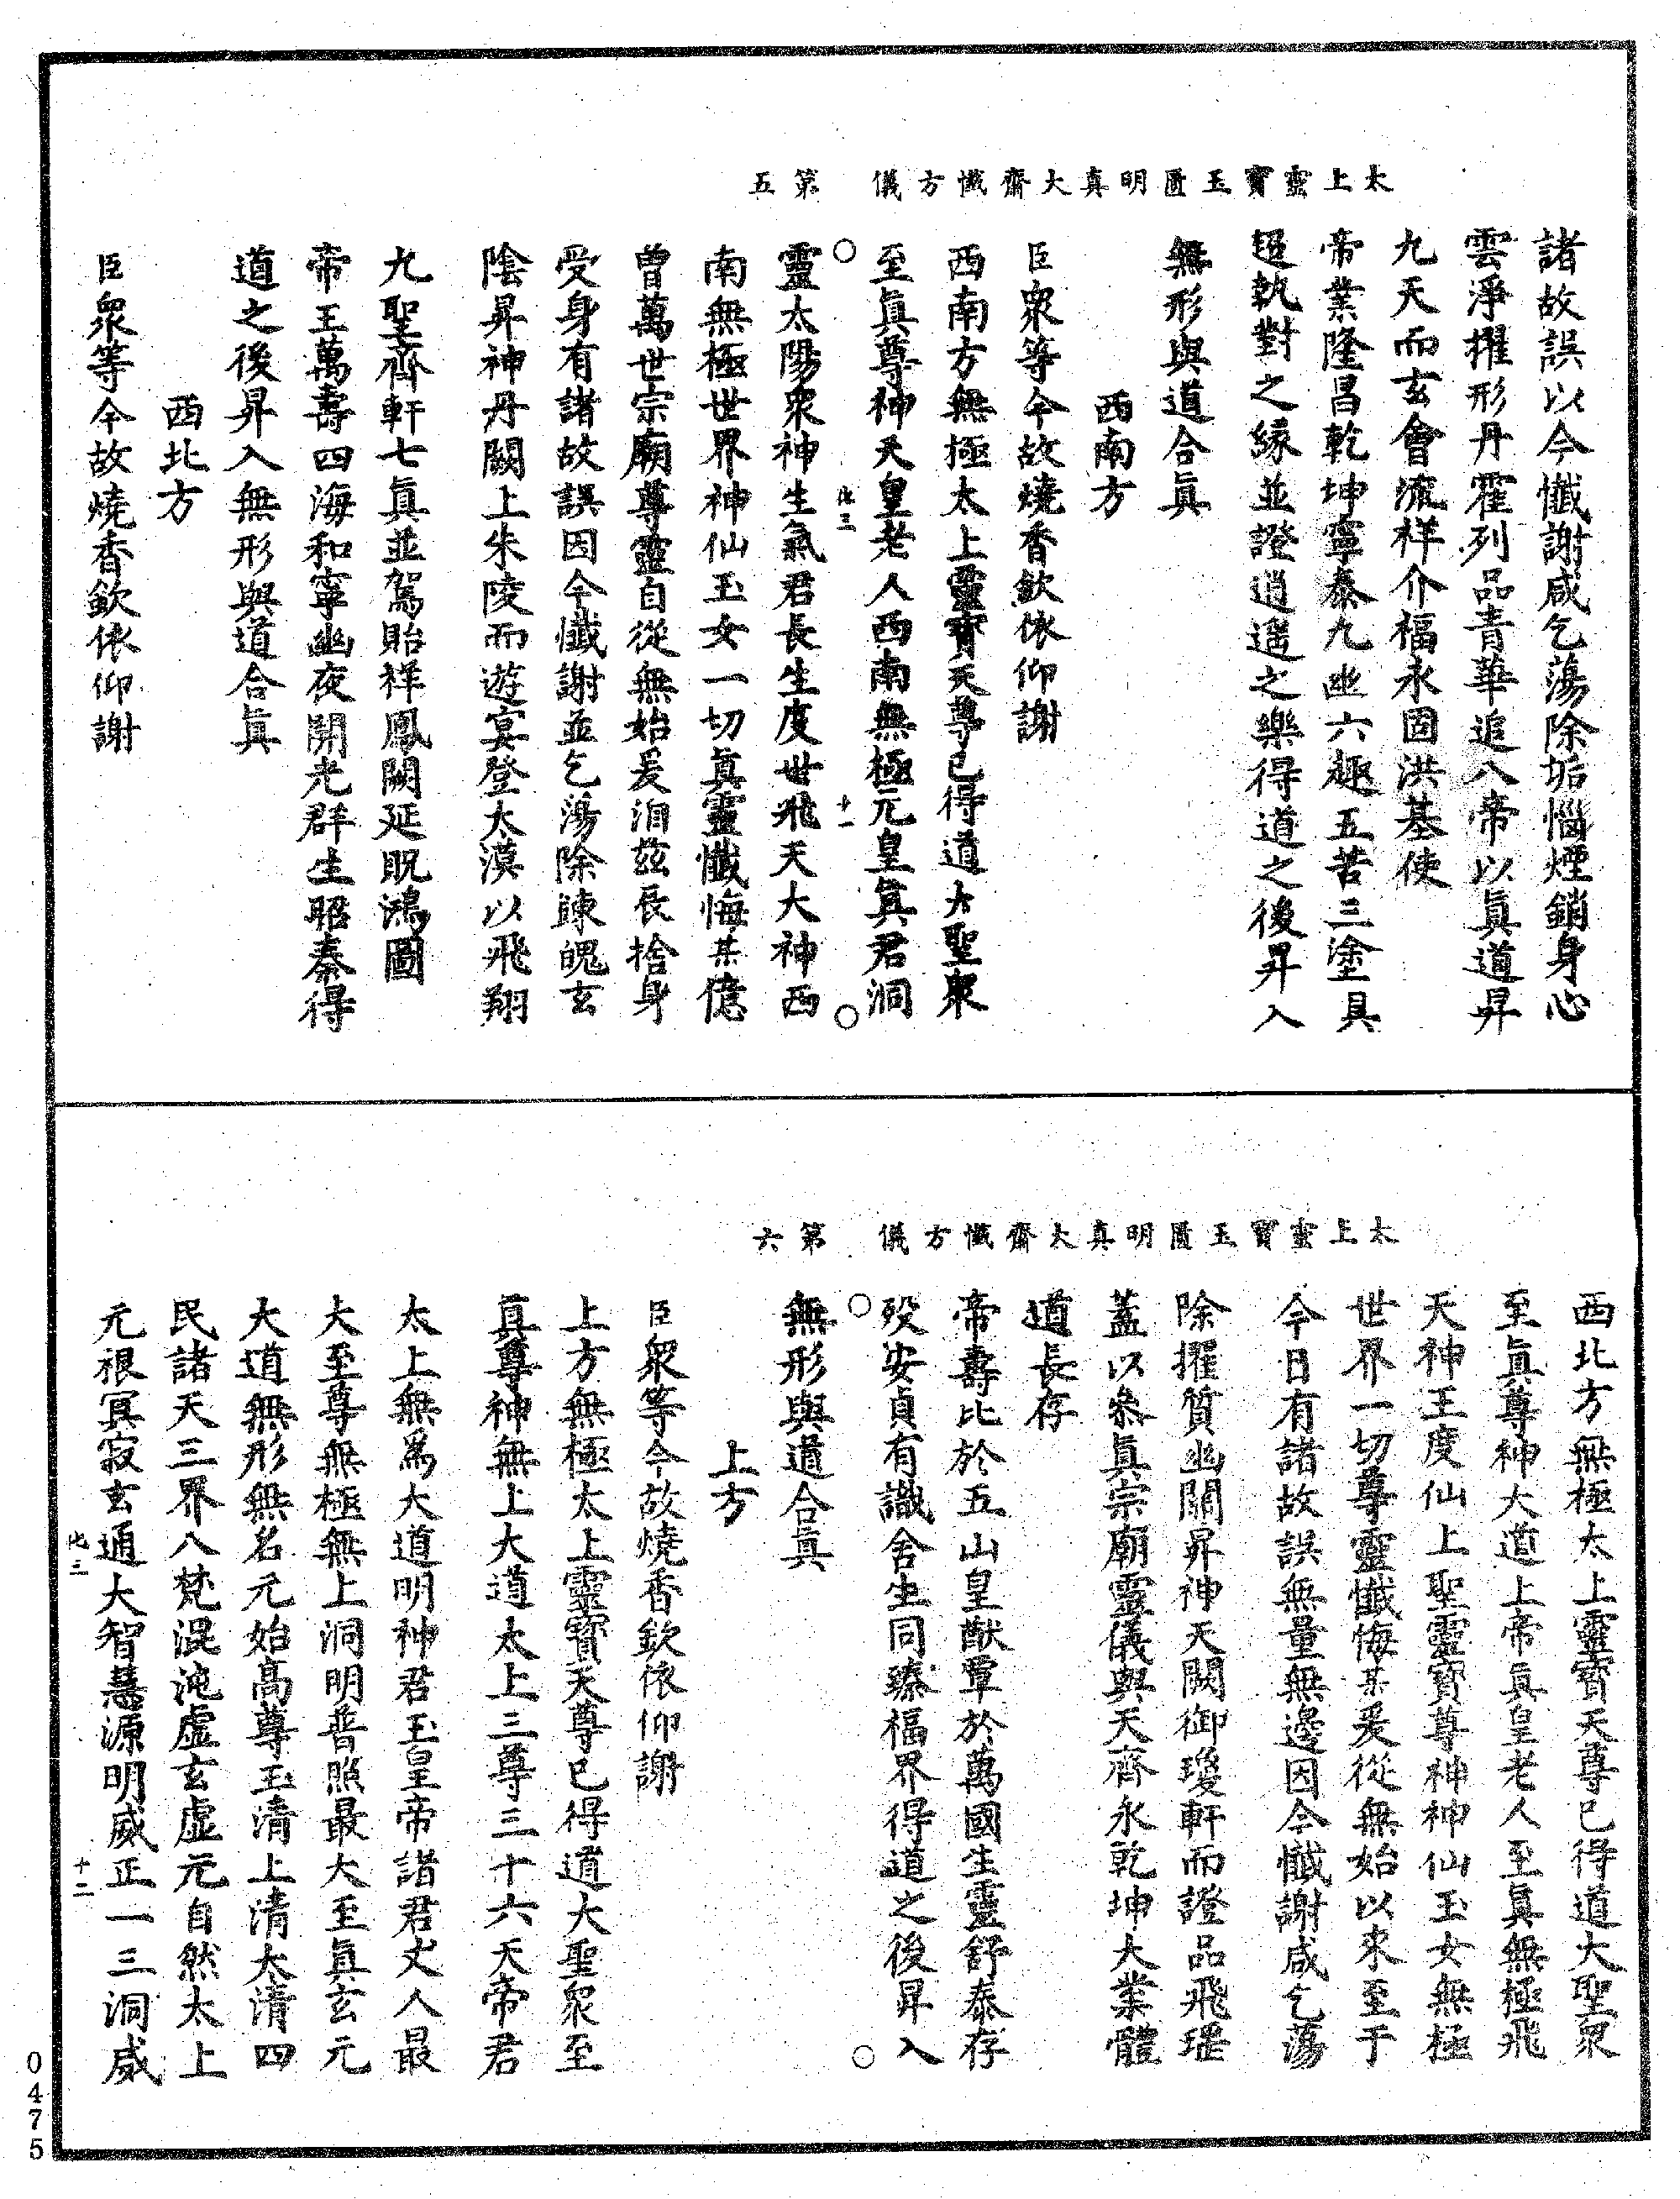 太上靈寶玉匱明真大齋懺方儀　第五
諸故誤以今懺謝咸乞蕩除垢惱煙銷身心
雲淨擢形丹霍列品青華追八帝以眞道昇
九天而玄會流祥介福永固洪基使
帝業隆昌乾坤寧泰九幽六趣五苦三塗具
迢執對之緣並證逍遥之樂得道之後昇入
無形與道合眞
西南方
臣衆等今故燒香欽依仰謝
西南方無極太上靈寶天尊已得道大聖衆
至眞尊神天皇老人西南無極元皇眞君洞
靈太陽衆神生氣君長生度世飛天大神西
南無極世界神仙玉女一切眞靈懺悔某億
曾萬世宗廟尊靈自從無始爰洎兹辰捨身
受身有諸故誤因今懺謝並乞蕩除諫愧玄
陰昇神丹闕上朱陵而遊宴登大漠以飛翔
九聖齊軒七眞並駕貽祥鳳闕延貺鴻圖
帝王萬壽四海和寧幽夜開光群生昭泰得
道之後昇入無形與道合眞
西北方
臣衆等今故燒香欽依仰謝
太上靈寶玉匱明真大齋懺方儀　第六
西北方無極太上靈寶天尊已得道大聖衆
至眞尊神大道上帝眞皇老人至眞無極飛
天神王度仙上聖靈寶尊神神仙玉女無極
世界一切尊靈懺悔某爰從無始以來至于
今日有諸故誤無量無邊因今懺謝咸乞蕩
除擢質幽關昇神天闕御瓊軒而證品飛瑤
蓋以叅眞宗廟靈儀與天齊永乾坤大業體
道長存
帝壽比於五山皇猷覃於萬國生靈舒泰存
殁安貞有識含生同臻福界得道之後昇入
無形與道合眞
上方
臣衆等今故燒香欽依仰謝
上方無極太上靈寶天尊已得道大聖衆至
眞尊神無上大道太上三尊三十六天帝君
太上無爲大道明神君玉皇帝諸君丈人最
大至尊無極無上洞明普照最大至眞玄元
大道無形無名元始高尊玉清上清太清四
民諸天三界八梵混沌虛玄虛元自然太上
元根冥寂玄通大智慧源明威正一三洞威
0475